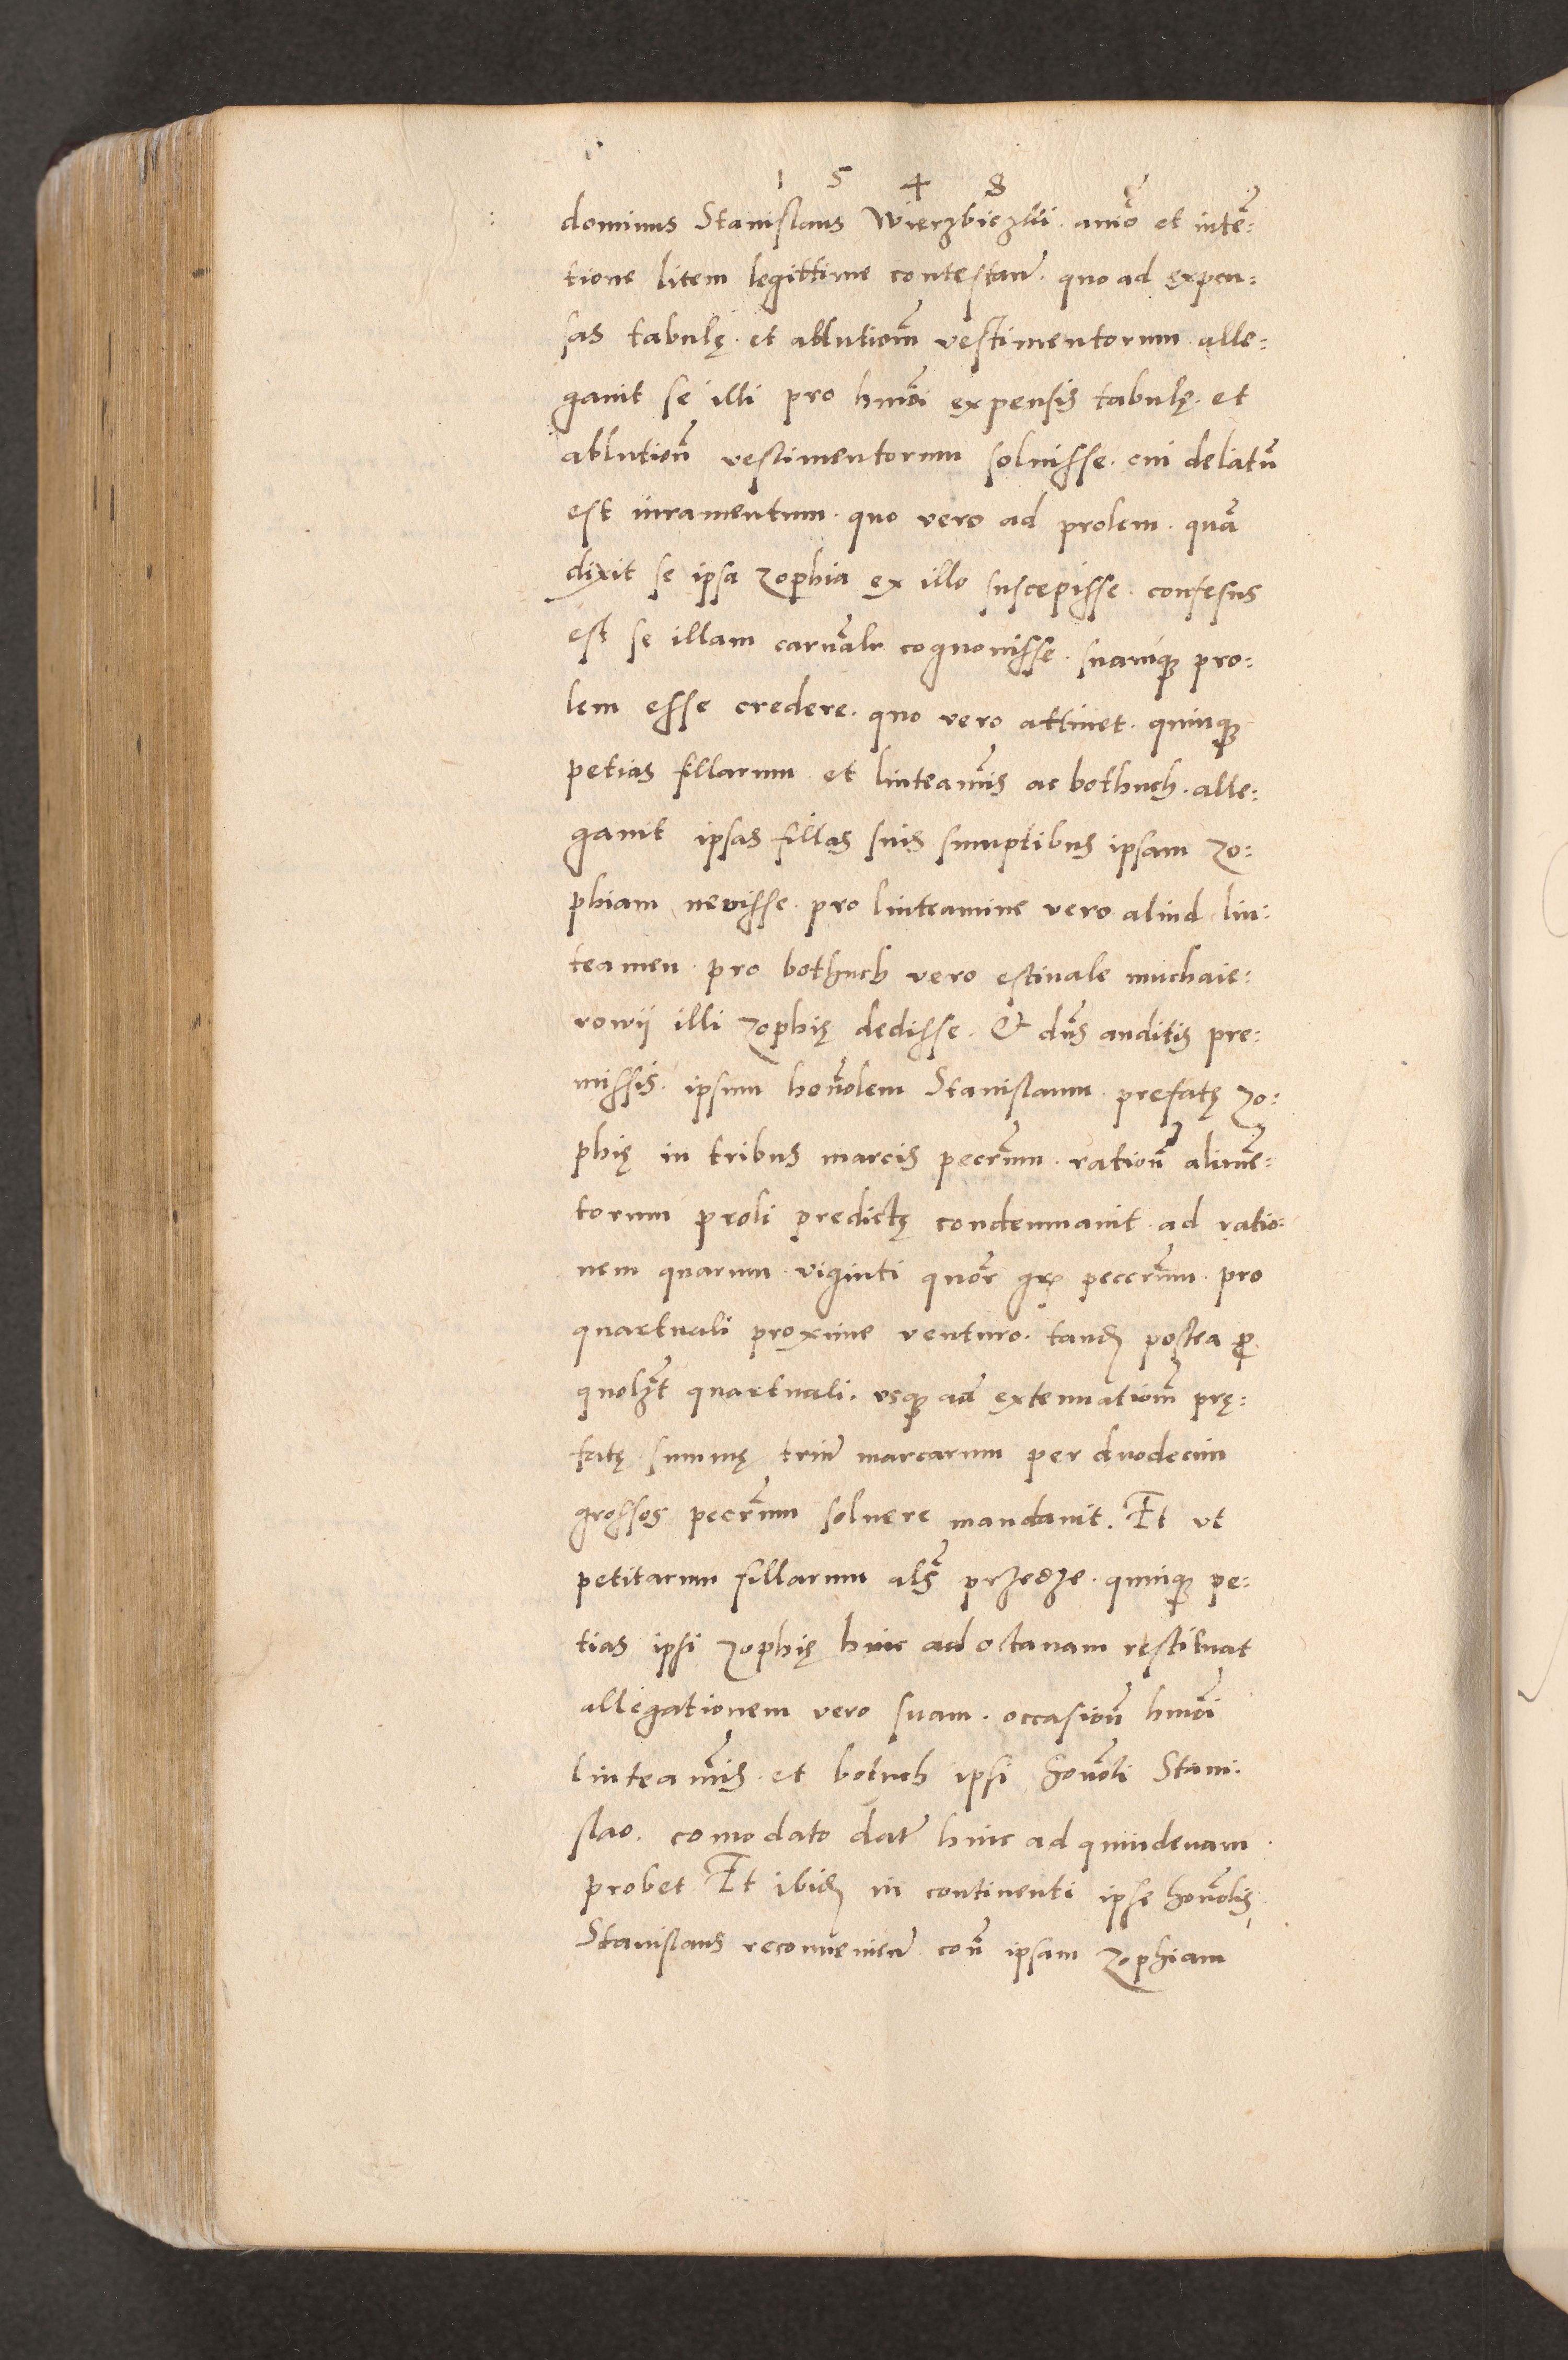 1 5 4 8
dominus Stanislaus Wierzbiczkii. animo et inten͂:
tione litem legittime contestan͂. quo ad expen:
sas tabulę. et ablutiom͂ vestimentorum alle:
gauit se illi pro hmoi͂ expensis tabulę. et
ablution͂ vestimentorum soluisse. cui delatu͂
est iuramentum. quo vero ad prolem. qua͂
dixit se ipsa Zophia ex illo suscepisse. confesus
est se illam carnalr͂ cognouisse. suamq₃ pro:
lem esse credere. quo vero attinet. quinq₃
petias fillarum et linteamis͂ ac bothuch. alle:
gauit ipsas fillas suis sumptibus ipsam Zo:
phiam nevisse. pro linteamine vero aliud lin:
teamen. pro bothuch vero estiuale muchaie:
rowij illi Zophię dedisse. Et dn͂s auditis pre:
missis. ipsum hono͂lem Stanislaum prefatę Zo:
phię in tribus marcis pecr͂um. ration͂ alime͂:
torum proli predictę condemnauit. ad ratio:
nem quarum viginti quo͂r gr͂ peccr͂um. pro
quartuali proxime venturo. tand₃ postea p
quolz͂t quartuali. vsq₃ ad extenuatiom͂ prę:
fatę summę triu͂ marcarum per duodecim
grossos pecr͂um soluere mandauit. Et vt
petitarum fillarum als͂ przedze. quinq₃ pe:
tias ipsi Zophię hinc ad octauam restituat
allegationem vero suam. occasion͂ hmoi͂
linteamis͂. et botuch ipsi hono͂li Stani:
slao. comodato dat͂ hinc ad quindenam
probet Et ibid₃ in continenti ipse hono͂lis
Stanislaus reconueniend͂ con͂ ipsam Zophiam